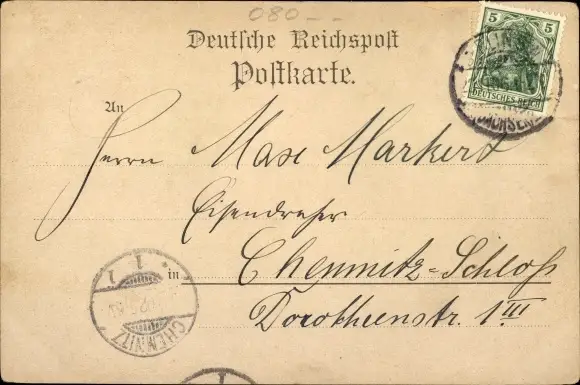 080--
5 5
DEUTSCHES REICH
(SACHSEN)
Deutsche Reichspost
Postkarte.
An
Herrn Max Markert
Eisendreher
in Chemnitz-Schloß
Dorotheenstr. 1 III
CHEMNITZ
1
1